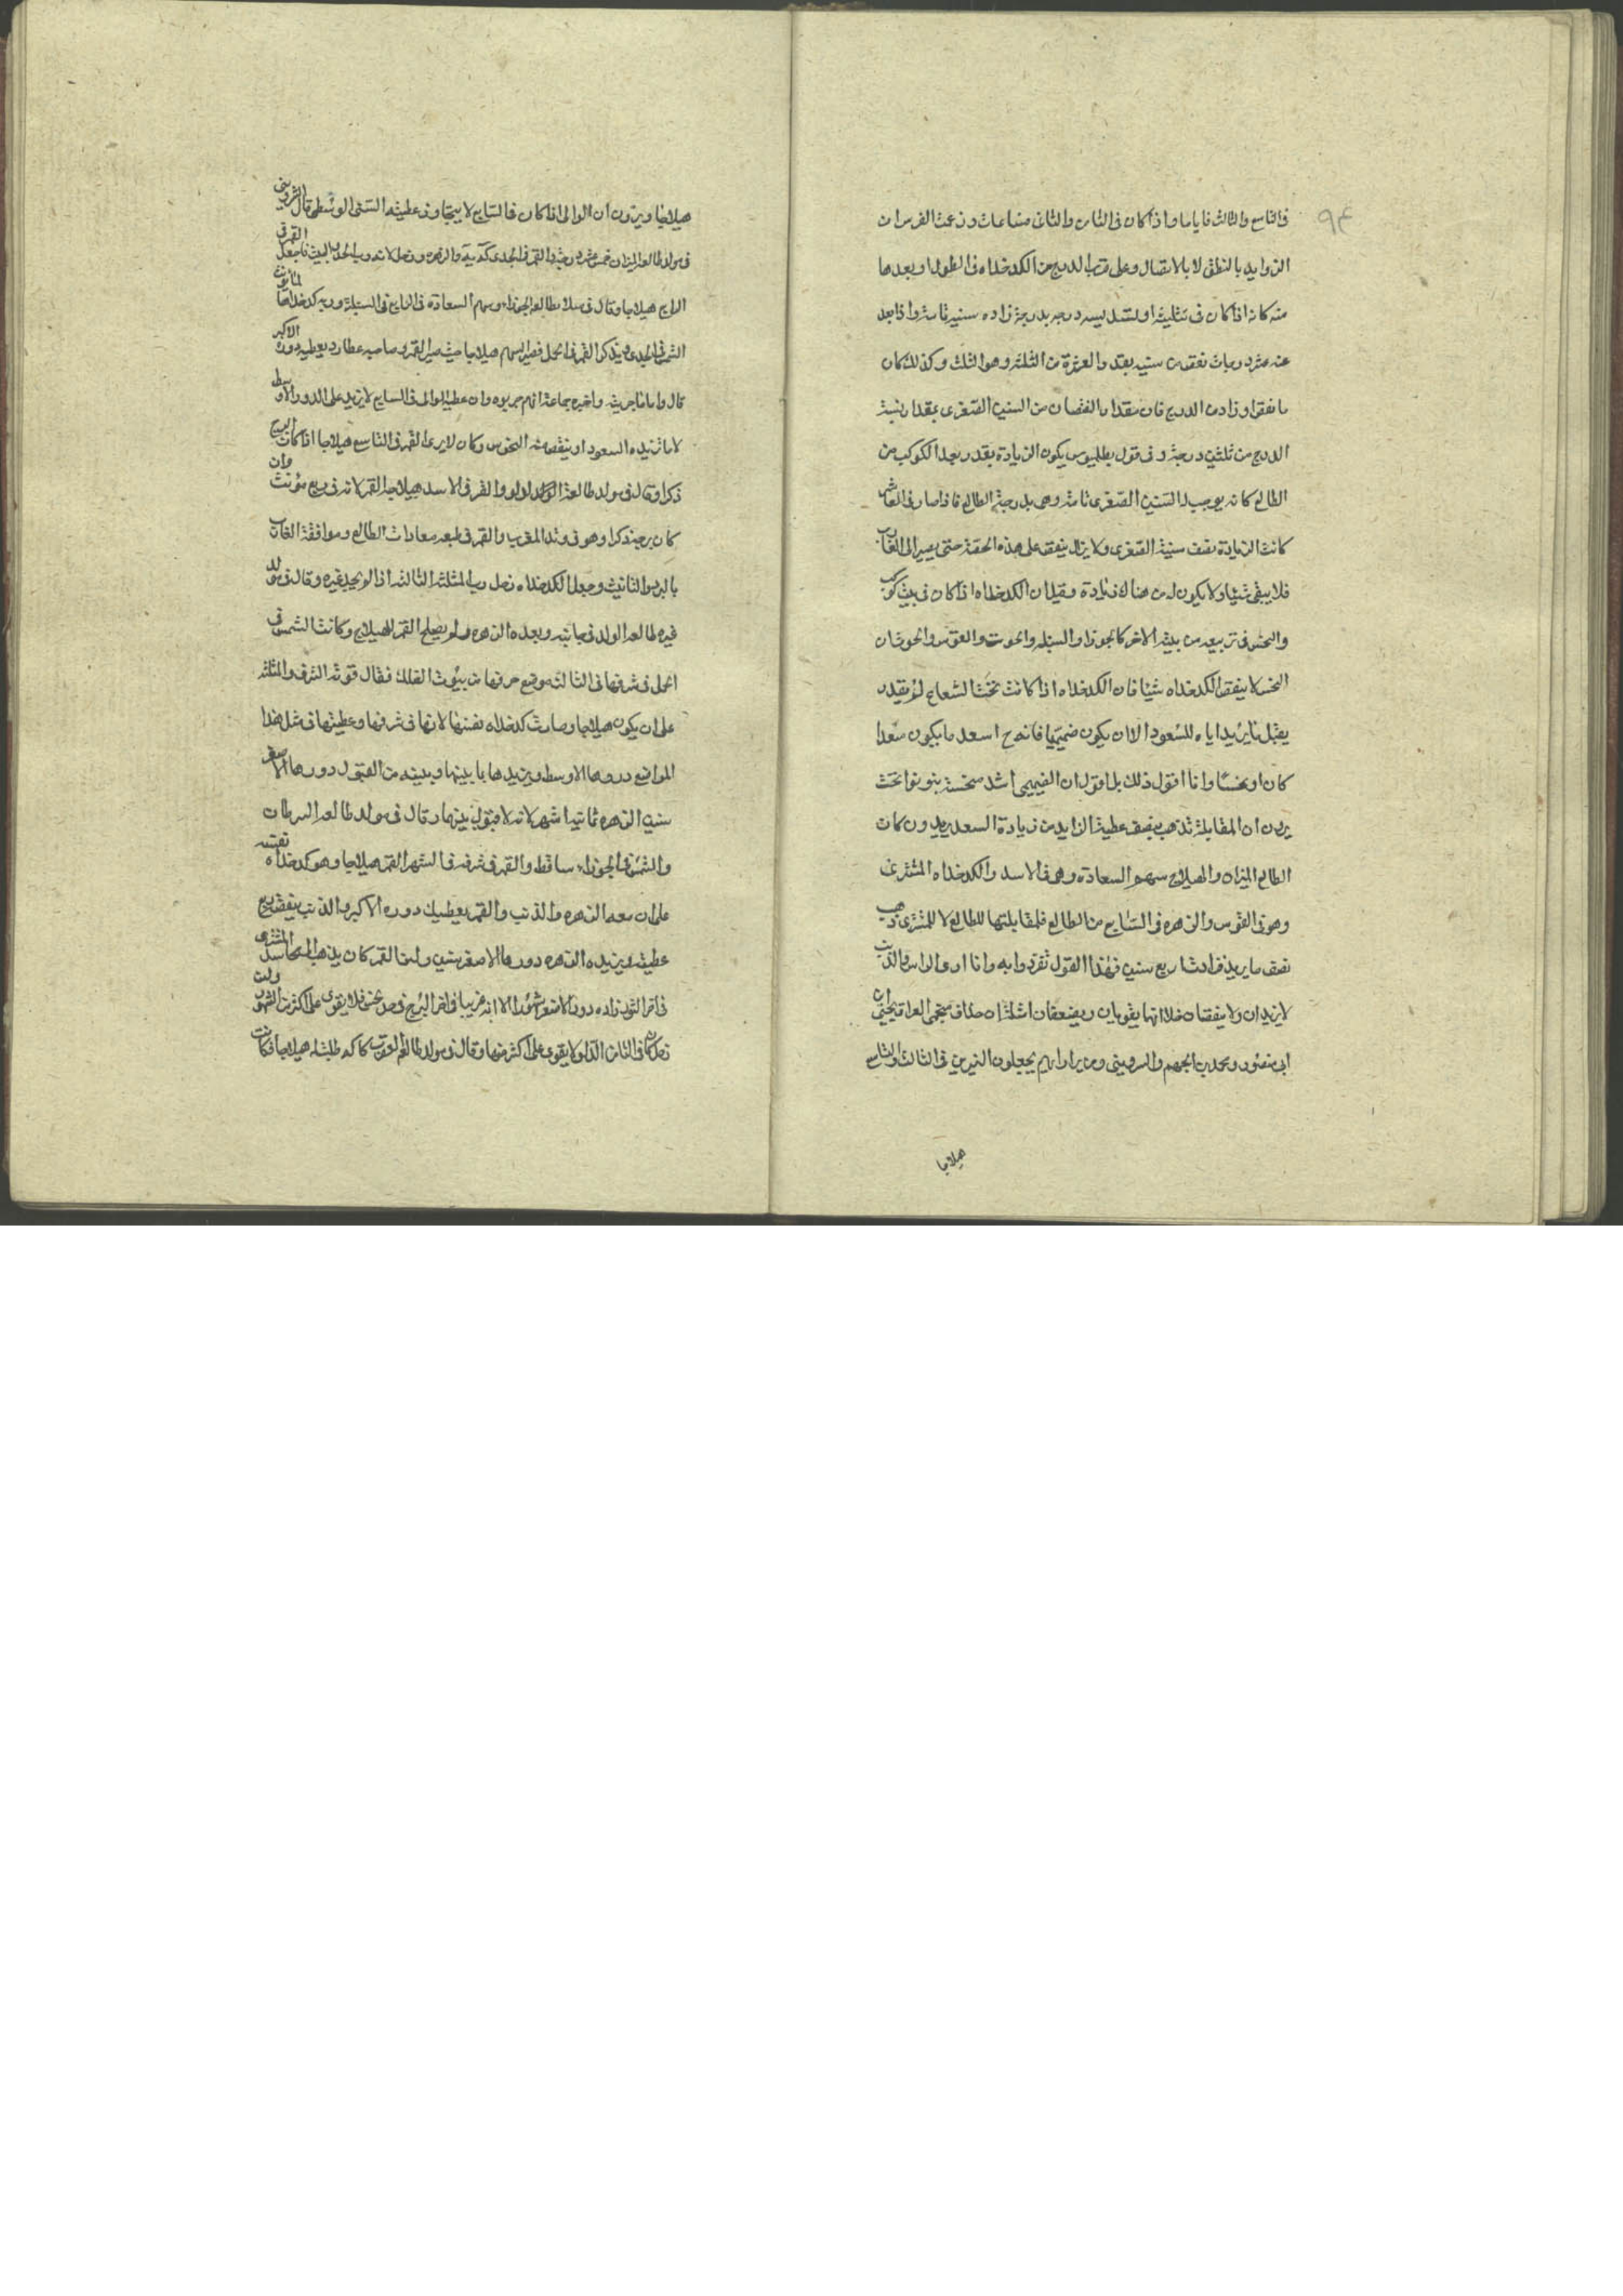 ٩٤
في التاسع والثالث فاياما واذا كان في الثامن والثاني فساعات وزعمت الفرس ان
الزوايد بالنطق لا بالاتصال وعلى قرب الدرج من الكدخداه في الطول او بعدها
منه كانه اذا كان في تثليثه او تسديسه درجه بدرجة زاده سنيه تامة واذا بعد
عنه عشر درجات نقص من سنيه بقدر العشرة من الثلثين وهو الثلث وكذلك كان
ما نقص او زاد من الدرج فان مقدار النقصان من السنين الصغرى بمقدار نسبة
الدرج من ثلثين درجة وفي قول بطلميوس يكون الزيادة بقدر بعد الكوكب من
الطالع كانه يوجب له السنين الصغرى تامة وهي بدرجة الطالع فاذا صار في العاشر
كانت الزيادة نصف سنية الصغرى ولا يزال ينقص على هذه الحصة حتى يصير الى الغارب
فلا يبقى شيئا ولا يكون له من هناك زيادة وقيل ان الكدخداه اذا كان في بيت كوكب
والنحس في تربيعه من بيته الاخر كالجوزا والسنبله والحوت والقوس والحوت فان
النحس لا ينقص الكدخداه شيئا فان الكدخداه اذا كانت تحت الشعاع لم يقدر
يقبل ما يزيد اياه السعود الا ان يكون صميميا فانه ح اسعد ما يكون سعدا
كان او نحسا وانا اقول ذلك بل اقول ان الصميمي اشد منحسة بنو نوبخت
يرون ان المقابلة تذهب بنصف عطية الزايد من زيادة السعد يريدون كان
الطالع الميزان والهيلاج سهم السعادة وهو في الاسد والكدخداه المشترى
وهو في القوس والزهره في السابع من الطالع فلمقابلتها للطالع لا للمشترى ذهب
نصف ما يريد فزادت اربع سنين فهذا القول تفردوا به وانا ارى الراس والذنب
لا يزيدان ولا ينقصان خلا انهما يقويان ويضعفان اشلثا ان حذاق منجمى العراق يحيى بن
ابى منصور ومحمد بن الجهم والسروينى ومن يرا رايهم يجعلون النيرين في الثالث والتاسع
هيلاجا
هيلاجا ويرون ان الوالى اذا كان في السابع لا يتجاوز عطيته السنى الوسطى قال الشروينى
في مولد طالعه الميزان خمس عشر درجة والقمر في الجدى والزهره وزحل لانه رب الحد والبيت فاجعل القمر في
الرابع هيلاجا وقال في ميلاد طالعه الجوزا وسهم السعادة في الرابع في السنبلة وربه كدخداها
الشمس في الجدى ويذكر القمر في الحمل فصير السهم هيلاجا حيث صير القمر وصاحبه عطارد يعطيه دوره الاكبر
قال واما ما جربته واخبره جماعة انهم جربوه وان عطية الوالى في السابع لا يزيد على الدور الاوسط
لا ما تزيده السعود او ينقص منه النحوس وكان لا يرى القمر في التاسع هيلاجا اذا كانت البرج
ذكرا وقال في مولد طالعه الدلو والقمر في الاسد هيلاجه القمر لانه في ربع مؤنث وان
كان برجه ذكرا وهو في وتد المغرب والقمر في طبعه معادات الطالع وموافقة الغارب
بالبرد والتانيث وجعل الكدخداه زحل رب المثلثه الثالثه اذا لم يجد غيره وقال في مولد
غيره طالعه الدلو في جانبه وبعده الزهره ولم يصلح القمر للهيلاج وكانت الشمس في
الحمل في شرفها في الثالثه موضع حرفها من بيوت الفلك فقال قوته الشرف والمثلثه
على ان يكون هيلاجا وصارت كدخداه نفسها لانها في شرفها وعطيتها في مثل هذا
المواضع دورها الاوسط ويزيدها ما بينها وبينه من القبول دورها الاصغر
سنين الزهره ثمانيه اشهر لانه لا قبول بينهما وقال في مولد طالعه السرطان
والشمس في الجوزاء ساقط والقمر في شرفه في الشهر القمر هيلاجا وهو كدخداه نفسه
على ان معه الزهره والذنب والقمر يعطيك دوره الاكبر والذنب ينقص ربع
عطيته ويزيده الزهره دورها الاصغر سنين ولمن القمر كان يذهب المشترى
في اخر الثور زاده دوره الاصغر شهورا الا انه غريبا في اخر البرج في حد نحس فلا يقوى على اكثر من الشهور ولمن
زحل كان في الثامن الدلو لا يقوى على اكثر منها وقال في مولد طالعه العقرب كاكه طلبت له هيلاجا فكانت